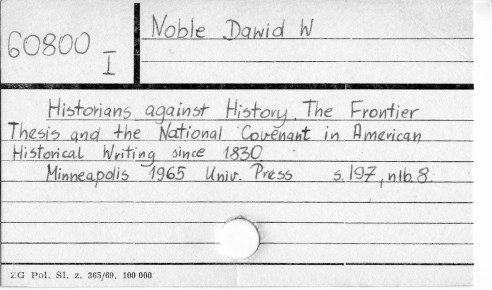 60800
I
Noble Dawid W
Historians against History. The Frontier
Thesis and the National Covenant in American
Historical Writing since 1830
Minneapolis 1965 Univ. Press s. 197, nlb. 8.
ZG Pol. Sl. z. 365/69. 100 000